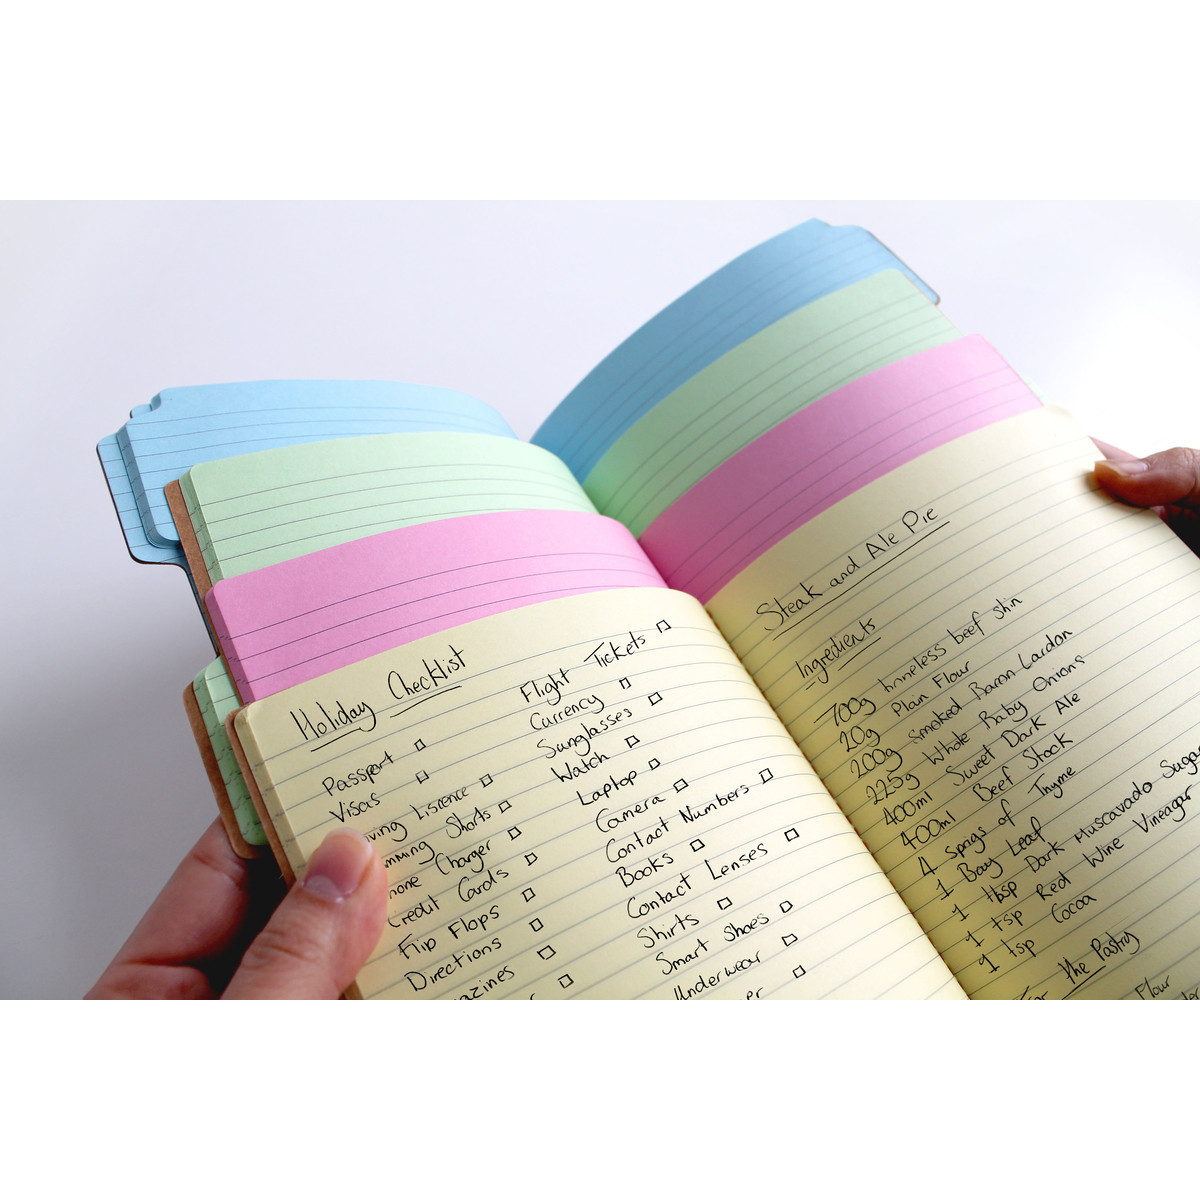 Holiday Checklist
Passport
Visas
Listence
Shorts
Charger
Credit Cards
Flip Flops
Directions
Flight Tickets
Currency
Sunglasses
Watch
Laptop
Camera
Contact Numbers
Books
Contact Lenses
Shirts
Smart Shoes
Underwear
Steak and Ale Pie
Ingredients
700g boneless beef shin
20g Plain Flour
200g Smoked Bacon Lardon
225g Whole Baby Onions
400ml Sweet Dark Ale
400ml Beef Stock
4 Spags of Thyme
1 Bay Leaf
1 tbsp Dark Muscavado Sugar
1 tsp Red Wine Vineagar
1 tsp Cocoa
For the Pastry
Flour